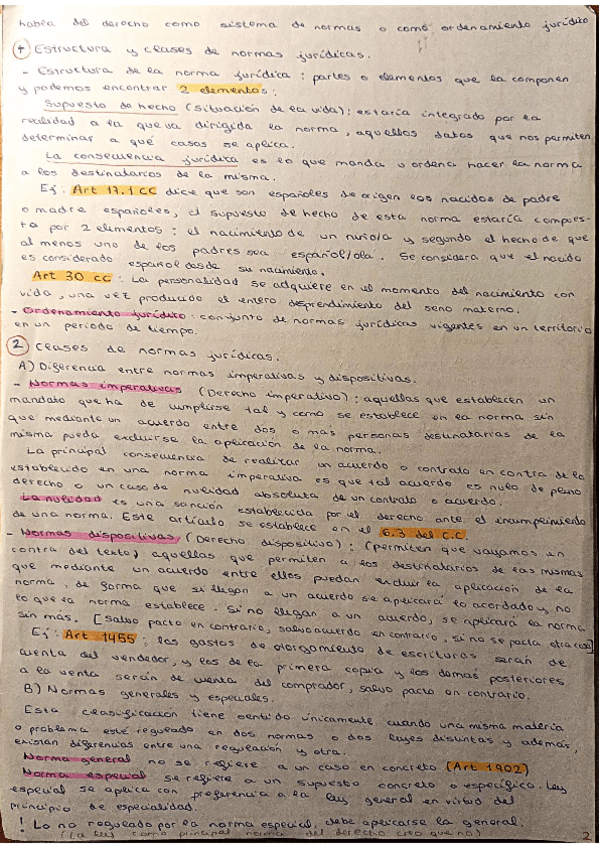 habla del derecho como sistema de normas o como ordenamiento jurídico
1 Estructura y clases de normas jurídicas.
- Estructura de la norma jurídica: partes o elementos que la componen
y podemos encontrar 2 elementos:
Supuesto de hecho (situación de la vida): estaría integrado por la
realidad a la que va dirigida la norma, aquellos datos que nos permiten
determinar a qué casos se aplica.
La consecuencia jurídica es lo que manda u ordena hacer la norma
a los destinatarios de la misma.
Ej: Art 17.1 CC dice que son españoles de origen los nacidos de padre
o madre españoles, el supuesto de hecho de esta norma estaría compues-
to por 2 elementos: el nacimiento de un niño/a y segundo el hecho de que
al menos uno de los padres sea español/ola. Se considera que el nacido
es considerado español desde su nacimiento.
Art 30 CC: La personalidad se adquiere en el momento del nacimiento con
vida, una vez producido el entero desprendimiento del seno materno.
- Ordenamiento jurídico: conjunto de normas jurídicas vigentes en un territorio
en un periodo de tiempo.
2 Clases de normas jurídicas.
A) Diferencia entre normas imperativas y dispositivas.
- Normas imperativas (Derecho imperativo): aquellas que establecen un
mandato que ha de cumplirse tal y como se establece en la norma sin
que mediante un acuerdo entre dos o más personas destinatarias de la
misma pueda excluirse la aplicación de la norma.
La principal consecuencia de realizar un acuerdo o contrato en contra de lo
establecido en una norma imperativa es que tal acuerdo es nulo de pleno
derecho o un caso de nulidad absoluta de un contrato o acuerdo.
La nulidad es una sanción establecida por el derecho ante el incumplimiento
de una norma. Este artículo se establece en el 6.3 del C.C
- Normas dispositivas (Derecho dispositivo): (permiten que vayamos en
contra del texto) aquellas que permiten a los destinatarios de las mismas
que mediante un acuerdo entre ellos puedan excluir la aplicación de la
norma, de forma que si llegan a un acuerdo se aplicará lo acordado y no
lo que la norma establece. Si no llegan a un acuerdo, se aplicará la norma
sin más. [Salvo pacto en contrario, salvo acuerdo en contrario, si no se pacta otra cosa]
Ej: Art 1455: los gastos de otorgamiento de escrituras serán de
cuenta del vendedor, y los de la primera copia y los demás posteriores
a la venta serán de cuenta del comprador, salvo pacto en contrario.
B) Normas generales y especiales.
Esta clasificación tiene sentido únicamente cuando una misma materia
o problema esté regulado en dos normas o dos leyes distintas y además,
existan diferencias entre una regulación y otra.
Norma general no se refiere a un caso en concreto (Art 1902)
Norma especial se refiere a un supuesto concreto o específico. Ley
especial se aplica con preferencia a la ley general en virtud del
principio de especialidad.
! Lo no regulado por la norma especial, debe aplicarse la general.
(La ley como principal norma del derecho creo que no)
2